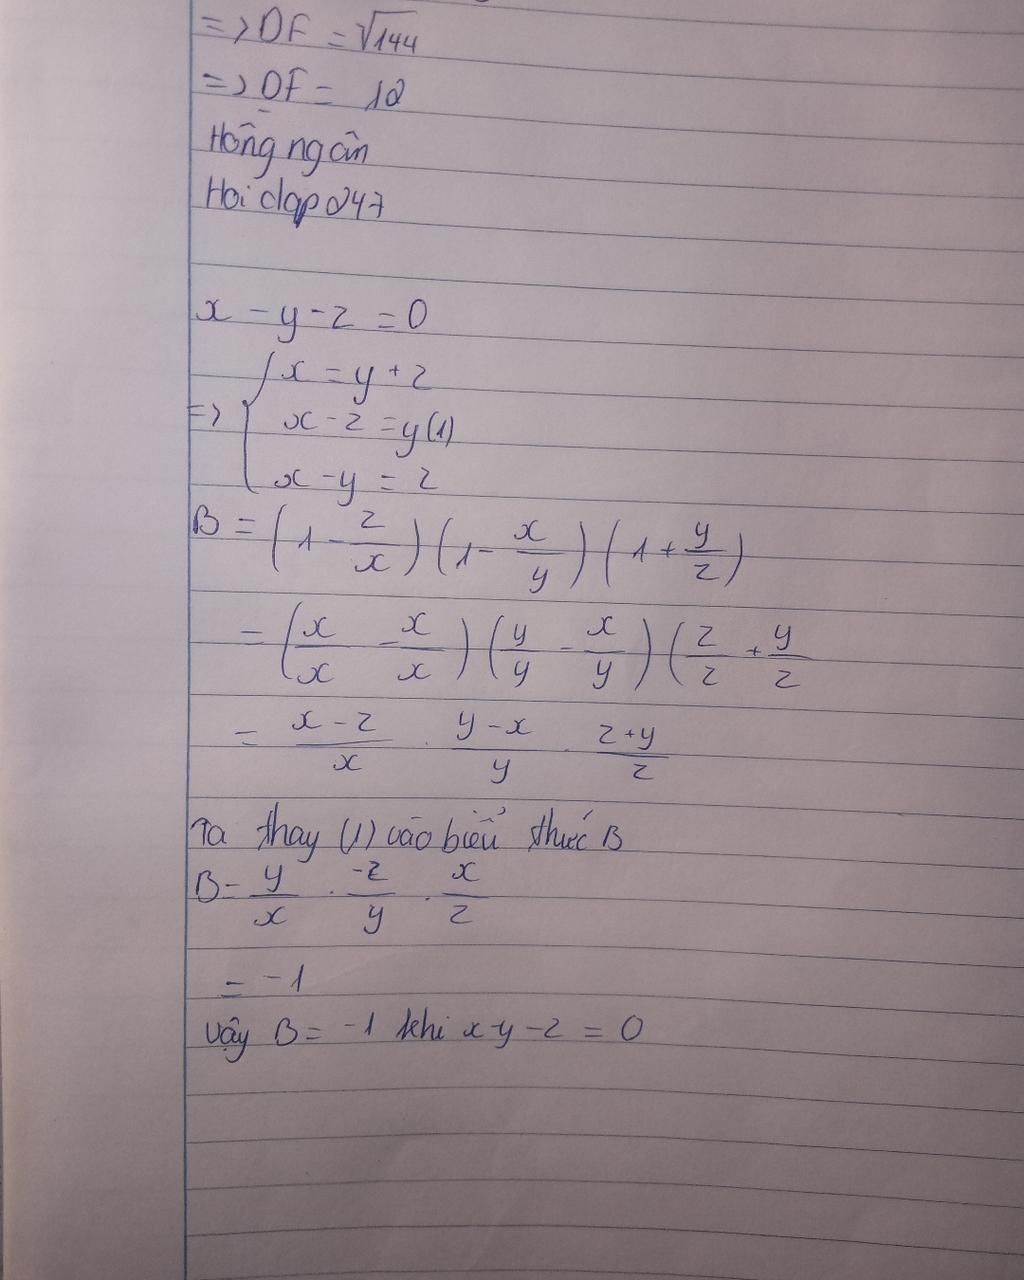 => DF = √144
=> DF = 12
Hồng ngân
Hoi dap 247
x - y - z = 0
=> { x = y + z
x - z = y (1)
x - y = z
B = (1 - z/x) (1 - x/y) (1 + y/z)
= (x/x - x/x) (y/y - x/y) (z/z + y/z
= x - z/x . y - x/y . z + y/z
Ta thay (1) vào biểu thức B
B = y/x . -z/y . x/z
= -1
Vậy B = -1 khi x - y - z = 0